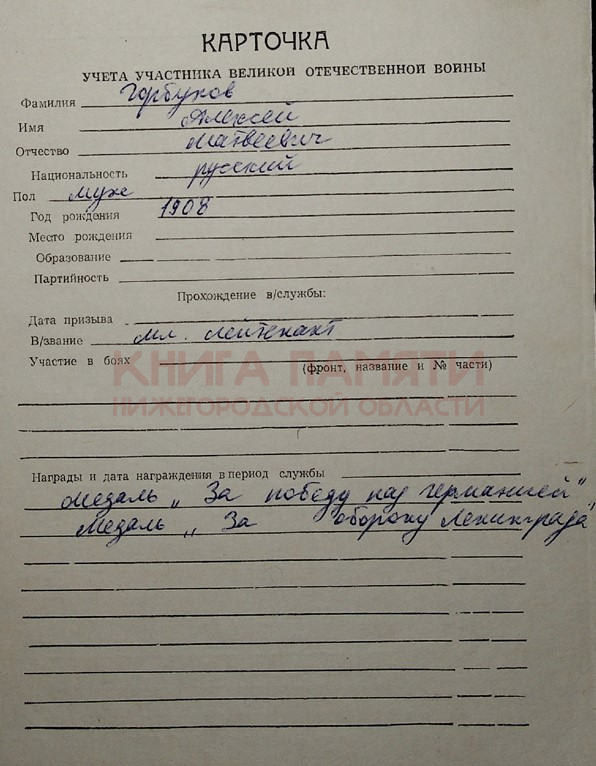 КАРТОЧКА
УЧЕТА УЧАСТНИКА ВЕЛИКОЙ ОТЕЧЕСТВЕННОЙ ВОЙНЫ
Фамилия Горбунов
Имя Алексей
Отчество Матвеевич
Национальность русский
Пол муж
Год рождения 1908
Место рождения
Образование
Партийность
Прохождение в/службы:
Дата призыва
В/звание мл. лейтенант
Участие в боях
(фронт, название и № части)
КНИГА ПАМЯТИ
НИЖЕГОРОДСКОЙ ОБЛАСТИ
Награды и дата награждения в период службы
Медаль „За победу над Германией"
Медаль „За оборону Ленинграда"